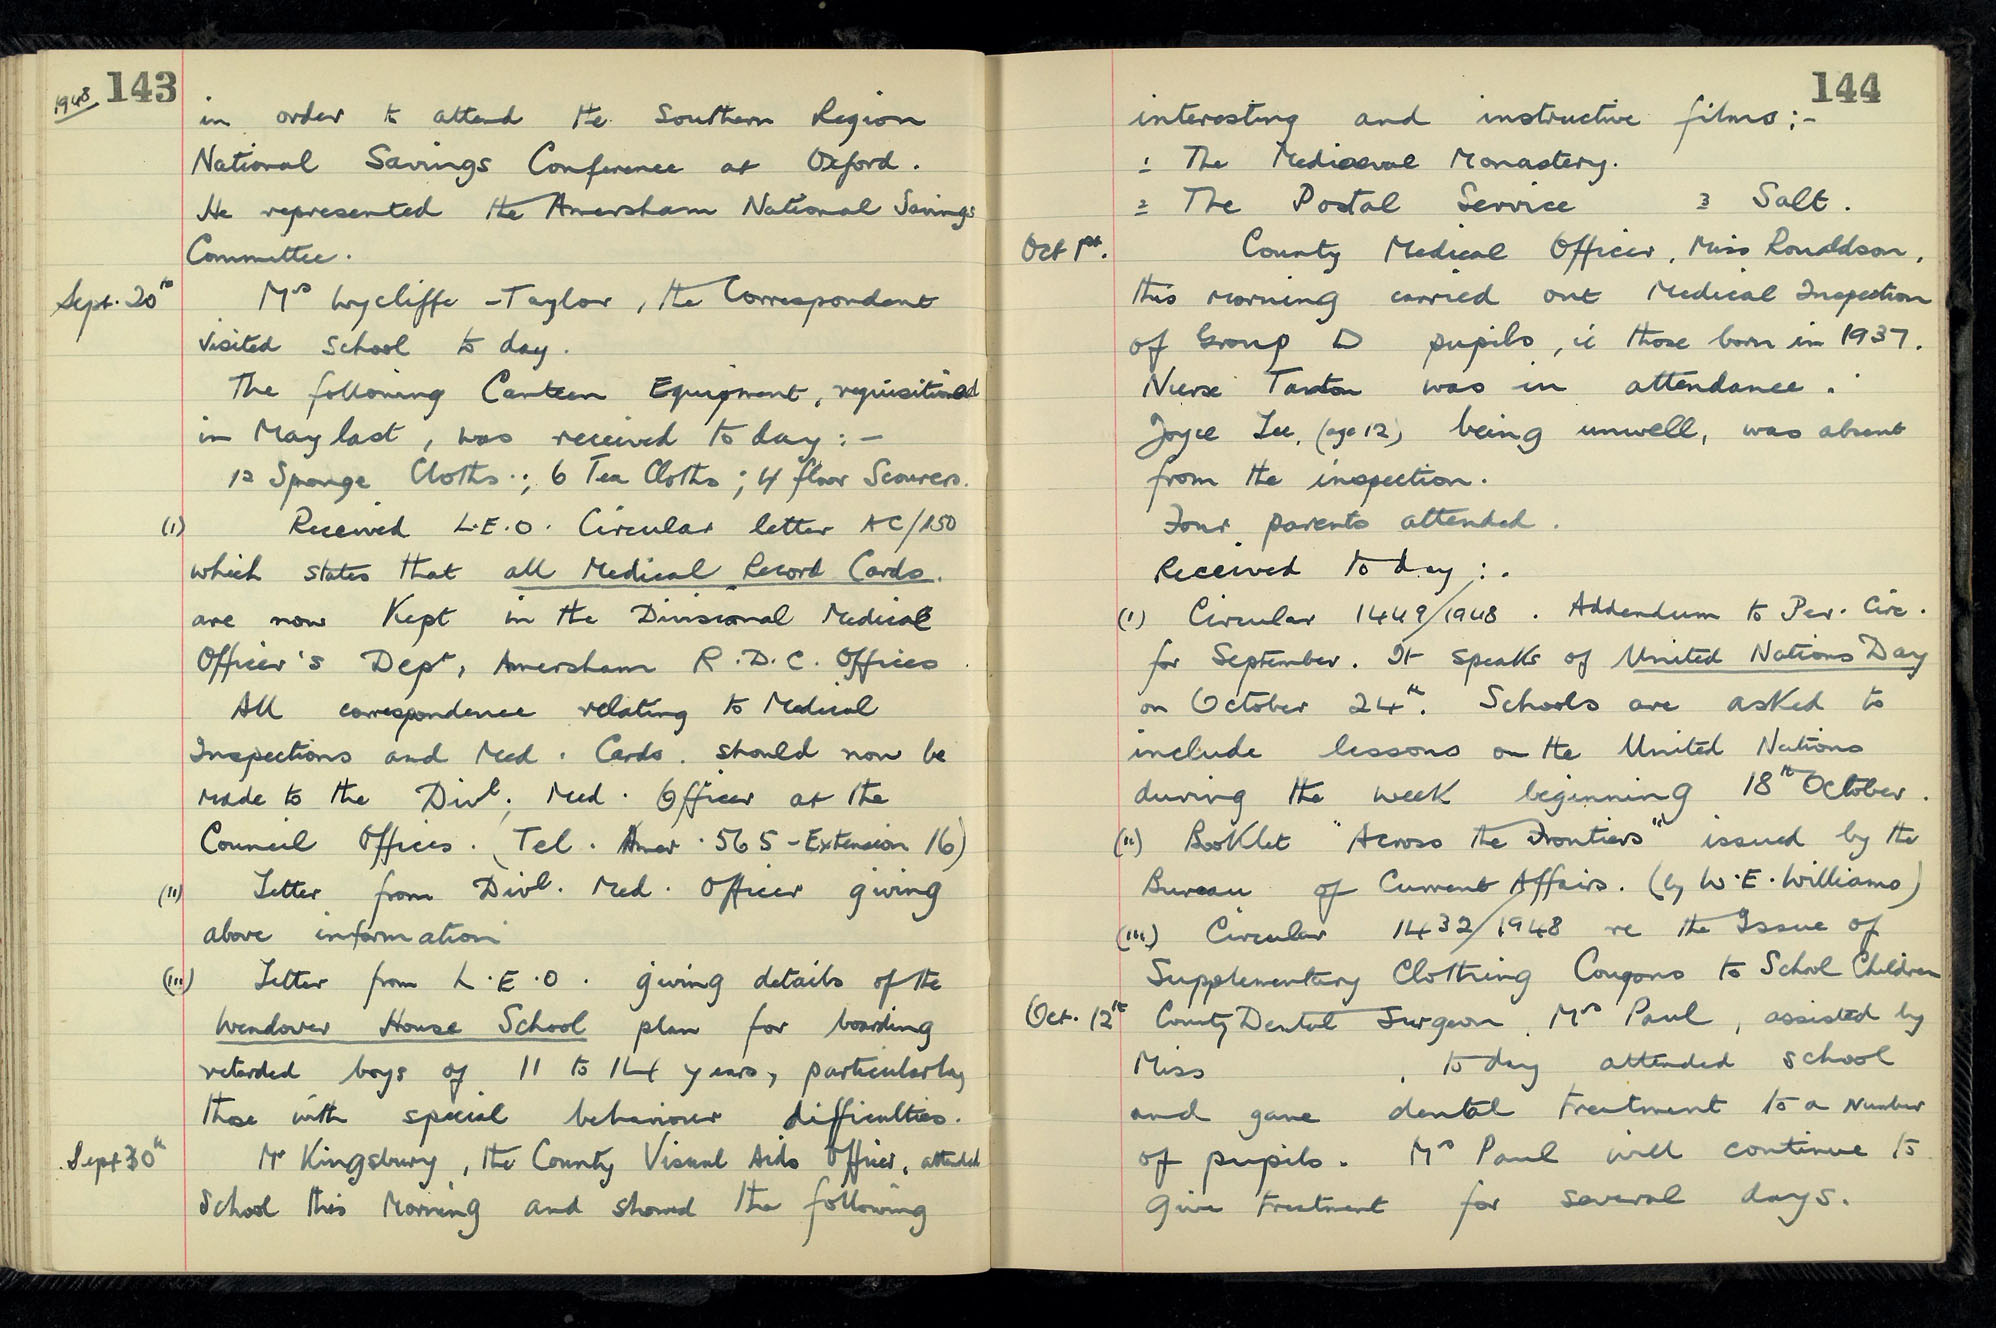 1948 143
in order to attend the Southern Region
National Savings Conference at Oxford.
He represented the Amersham National Savings
Committee.
Sept. 20th Mrs Wycliffe-Taylor, the Correspondent
visited school to day.
The following Canteen Equipment, requisitioned
in May last, was received to day:-
12 Sponge Cloths.; 6 Tea Cloths; 4 floor Scourers.
(i) Received L.E.O. Circular letter AC/150
which states that all Medical Record Cards.
are now Kept in the Divisional Medical
Officer's Dept, Amersham R.D.C. Offices.
All correspondence relating to Medical
Inspections and Med. Cards. should now be
made to the Divl. Med. Officer at the
Council Offices. (Tel. Amer. 565 - Extension 16)
(ii) Letter from Divl. Med. Officer giving
above information
(iii) Letter from L.E.O. giving details of the
Wendover House School plan for boarding
retarded boys of 11 to 14 years, particularlay
those with special behaviour difficulties.
Sept 30th Mr Kingsbury, the County Visual Aids Officer, attended
School this Morning and showed the following
144
interesting and instructive films:-
1 The Mediaeval Monastery.
2 The Postal Service 3 Salt.
Oct 1st. County Medical Officer, Miss Ronaldson,
this morning carried out Medical Inspection
of Group D pupils, ie those born in 1937.
Nurse was in attendance.
Joyce Lee, (age 12) being unwell, was absent
from the inspection.
Four parents attended.
Received to day:.
(i) Circular 1449/1948. Addendum to Per. Circ.
for September. It speaks of United Nations Day
on October 24th. Schools are asked to
include lessons on the United Nations
during the week beginning 18th October.
(ii) Booklet "Across the Frontiers" issued by the
Bureau of Current Affairs. (by W.E. Williams)
(iii) Circular 1432/1948 re the Issue of
Supplementary Clothing Coupons to School Children
Oct. 12th County Dental Surgeon, Mrs Paul, assisted by
Miss , to day attended school
and gave dental treatment to a Number
of pupils. Mrs Paul will continue to
give treatment for several days.